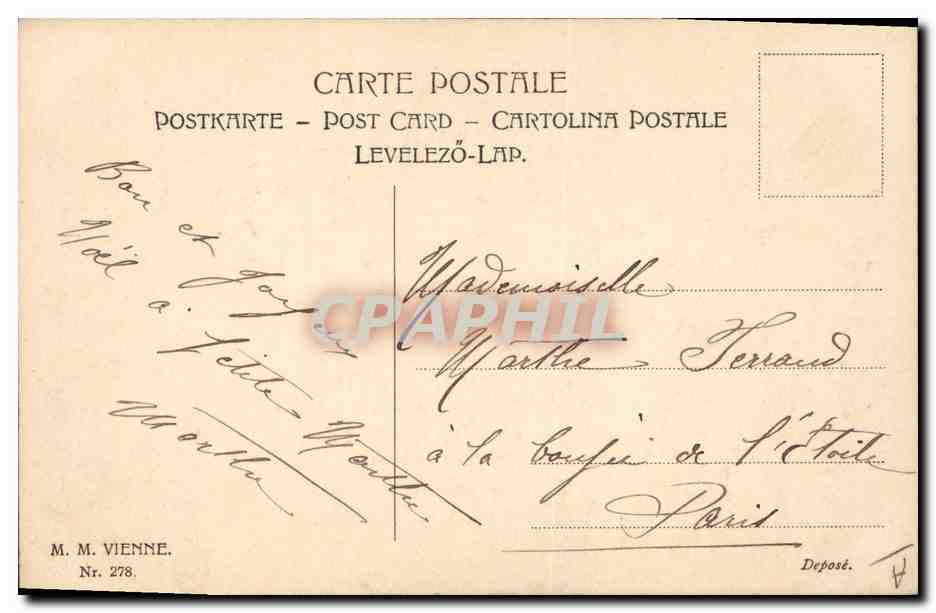 CARTE POSTALE
POSTKARTE – POST CARD – CARTOLINA POSTALE
LEVELEZŐ-LAP.
Bon et Joyeux
Noël à petite Marthe
Marthe
Mademoiselle
Marthe Ferrand
à la de l'Étoile
Paris
M. M. VIENNE.
Nr. 278.
Deposé.
CPAPHIL